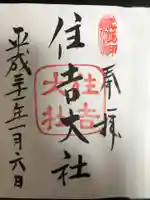 奉拝
住吉大社
住吉
大社
平成三十年一月六日